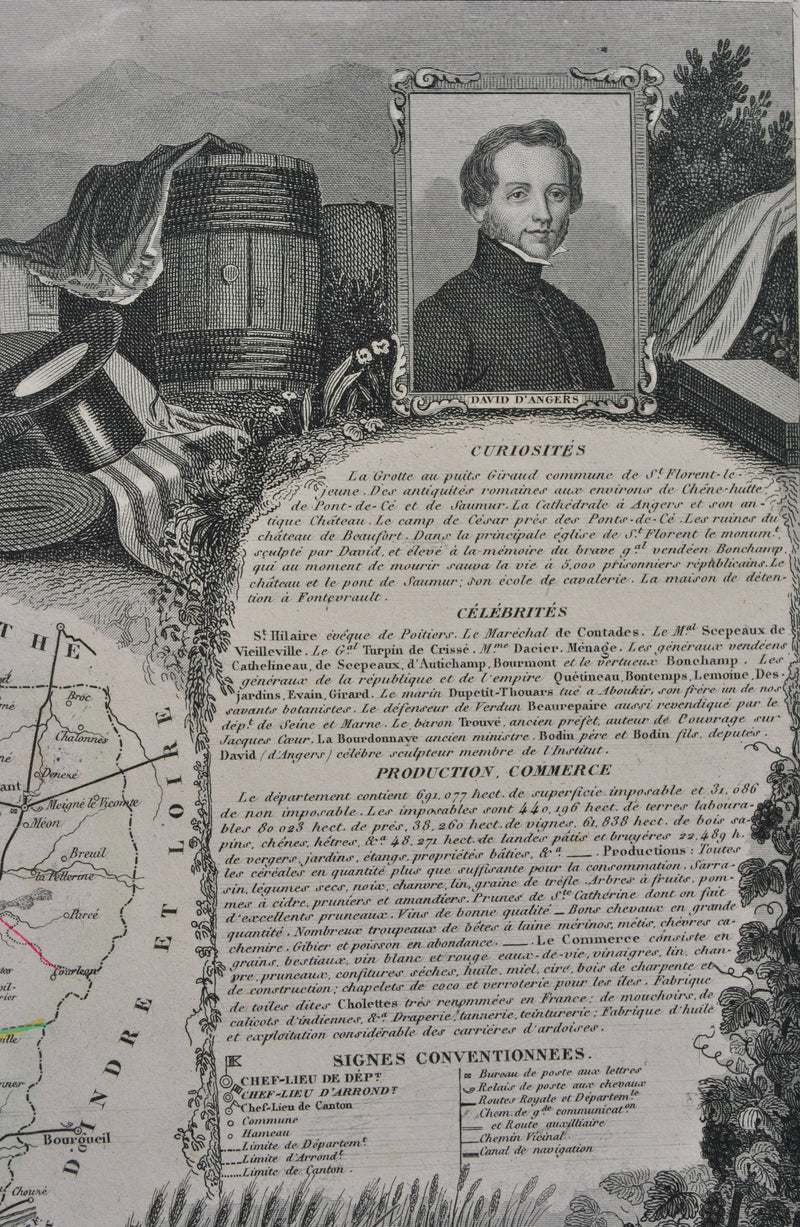 DAVID D'ANGERS
CURIOSITÉS
La Grotte au puits Giraud commune de S.t Florent-le-
jeune. Des antiquités romaines aux environs de Chêne-hutte,
de Pont-de-Cé et de Saumur. La Cathédrale à Angers et son an-
tique Château. Le camp de César près des Ponts-de-Cé. Les ruines du
château de Beaufort. Dans la principale église de S.t Florent le monum.t,
sculpté par David, et élevé à la mémoire du brave g.al vendéen Bonchamp,
qui au moment de mourir sauva la vie à 5,000 prisonniers républicains. Le
château et le pont de Saumur; son école de cavalerie. La maison de déten-
tion à Fontevrault.
CÉLÉBRITÉS
S.t Hilaire évêque de Poitiers. Le Maréchal de Contades. Le M.al Scepeaux de
Vieilleville. Le G.al Turpin de Crissé. M.me Dacier. Ménage. Les généraux vendéens
Cathelineau, de Scepeaux, d'Autichamp, Bourmont et le vertueux Bonchamp. Les
généraux de la république et de l'empire Quétineau, Bontemps, Lemoine, Des-
jardins, Evain, Girard. Le marin Dupetit-Thouars tué à Aboukir, son frère un de nos
savants botanistes. Le défenseur de Verdun Beaurepaire aussi revendiqué par le
dép.t de Seine et Marne. Le baron Trouvé, ancien préfet, auteur de l'ouvrage sur
Jacques Cœur. La Bourdonnaye ancien ministre. Bodin père et Bodin fils, députés.
David (d'Angers) célèbre sculpteur membre de l'Institut.
PRODUCTION, COMMERCE
Le département contient 691,077 hect. de superficie imposable et 31,086
de non imposable. Les imposables sont 440,196 hect. de terres laboura-
bles 80 023 hect. de prés, 38,260 hect. de vignes, 61,838 hect. de bois sa-
pins, chênes, hêtres, &.a 48,271 hect. de landes pâtis et bruyères 22,489 h.
de vergers, jardins, étangs, propriétés bâties, &.a — . Productions: Toutes
les céréales en quantité plus que suffisante pour la consommation. Sarra-
sin, légumes secs, noix, chanvre, lin, graine de trèfle. Arbres à fruits, pom-
mes à cidre, pruniers et amandiers. Prunes de S.te Cathérine dont on fait
d'excellents pruneaux. Vins de bonne qualité — Bons chevaux en grande
quantité. Nombreux troupeaux de bêtes à laine mérinos, métis, chèvres ca-
chemire. Gibier et poisson en abondance. — . Le Commerce consiste en
grains, bestiaux, vin blanc et rouge, eaux-de-vie, vinaigres, lin, chan-
vre, pruneaux, confitures sèches, huile, miel, cire, bois de charpente et
de construction; chapelets de coco et verroterie pour les îles. Fabrique
de toiles dites Cholettes très renommées en France; de mouchoirs, de
calicots d'indiennes, &.a Draperie, tannerie, teinturerie; Fabrique d'huile
et exploitation considérable des carrières d'ardoises.
SIGNES CONVENTIONNEES.
CHEF-LIEU DE DÉP.T
CHEF-LIEU D'ARROND.T
Chef-Lieu de Canton
Commune
Hameau
Limite de Départem.t
Limite d'Arrond.t
Limite de Canton.
Bureau de poste aux lettres
Relais de poste aux chevaux
Routes Royale et Départem.le
Chem. de g.de communicat.on
et Route auxiliaire
Chemin Vicinal
Canal de navigation
THE
INDRE ET LOIRE
D
Broc
Chalonnes
Denezé
Meigné le Vicomte
Méon
Breuil
la Pellerine
Parcé
Bourgueil
Chouzé